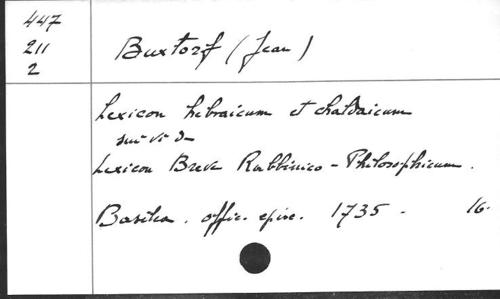 447
211
2
Buxtorf (Jean)
Lexicon hebraicum et chaldaicum
suivi de
Lexicon Breve Rabbinico-Philosophicum.
Basilea. offic. episc. 1735. 16.